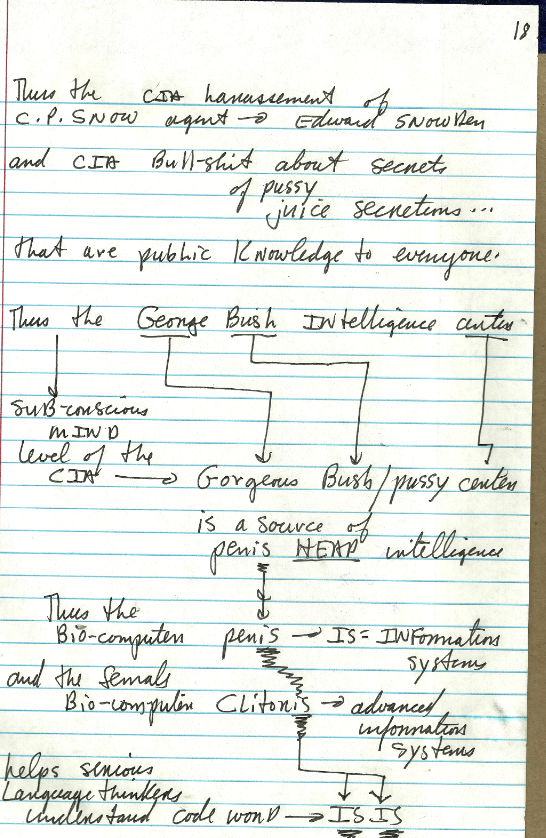 18
Thus the CIA harrassement of
C.P. SNOW agent → Edward SNOWDen
and CIA Bull-shit about secrets
of pussy
juice secretions...
that are public Knowledge to everyone.
Thus the George Bush INtelligence center
SUB-conscious
MIND
level of the
CIA → Gorgeous Bush/pussy center
is a source of
penis HEAD intelligence
Thus the
Bio-computer penis → IS = INFormation
systems
and the female
Bio-computer Clitoris → advanced
information
systems
helps serious
Language thinkers
understand code word → IS IS